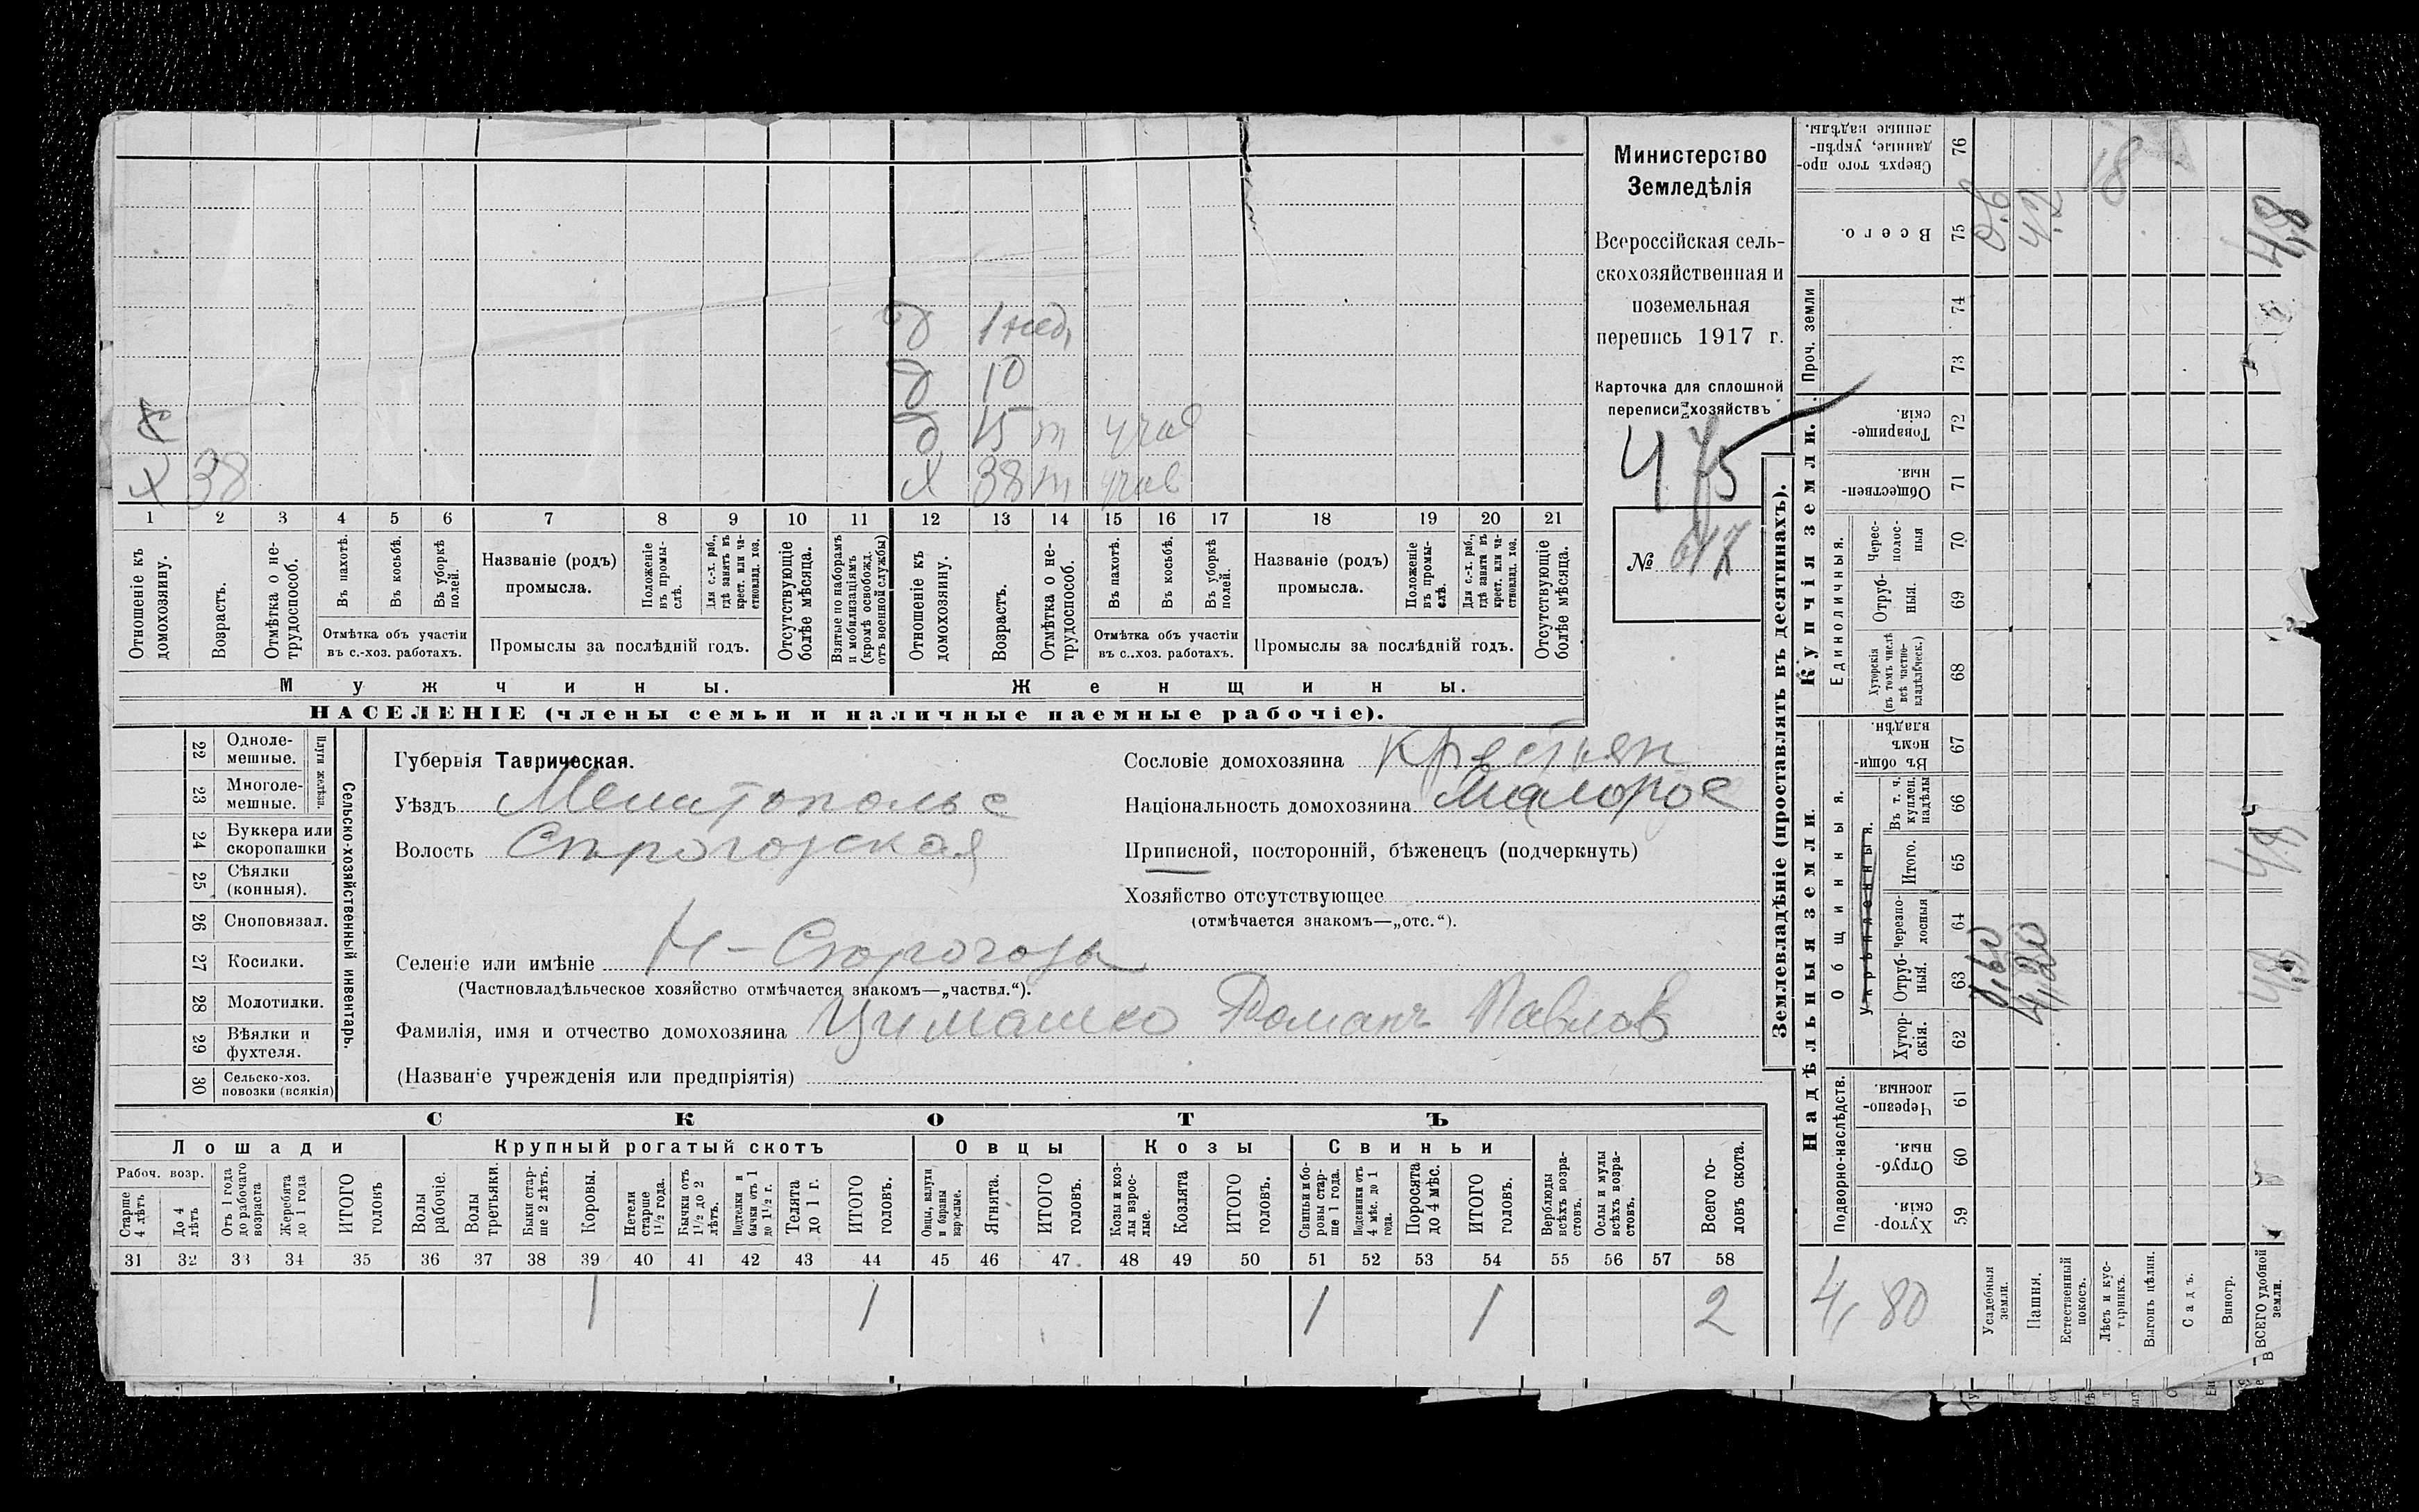 д 1 нед,
д 10
д 15 т учав
х 38 х 38 т учав
1 2 3 4 5 6 7 8 9 10 11 12 13 14 15 16 17 18 19 20 21
Отношеніе къ домохозяину.
Возрастъ.
Отмѣтка о нетрудоспособ.
Въ пахотѣ.
Въ косьбѣ.
Въ уборкѣ полей.
Отмѣтка объ участіи въ с.-хоз. работахъ.
Названіе (родъ) промысла.
Положеніе въ промыслѣ.
Для с.-х. раб., гдѣ занятъ въ крест. или частновлад. хоз.
Промыслы за послѣдній годъ.
Отсутствующіе болѣе мѣсяца.
Взятые по наборамъ и мобилизаціямъ (кромѣ освобожд. отъ военной службы)
Отношеніе къ домохозяину.
Возрастъ.
Отмѣтка о нетрудоспособ.
Въ пахотѣ.
Въ косьбѣ.
Въ уборкѣ полей.
Отмѣтка объ участіи въ с..хоз. работахъ.
Названіе (родъ) промысла.
Положеніе въ промыслѣ.
Для с.-х. раб., гдѣ занята въ крест. или частновлад. хоз.
Промыслы за послѣдній годъ.
Отсутствующіе болѣе мѣсяца.
Мужчины. Женщины.
НАСЕЛЕНІЕ (члены семьи и наличные наемные рабочіе).
Министерство
Земледѣлія
Всероссійская сель-
скохозяйственная и
поземельная
перепись 1917 г.
Карточка для сплошной
переписи хозяйствъ
475
№
22 Одноле-мешные.
23 Многоле-мешные.
Плуги желѣзн.
24 Буккера или скоропашки
25 Сѣялки (конныя).
26 Сноповязал.
27 Косилки.
28 Молотилки.
29 Вѣялки и фухтеля.
30 Сельско-хоз. повозки (всякія)
Сельско-хозяйственный инвентарь.
Губернія Таврическая.
Уѣздъ Мелитопольс
Волость Строгозская
Селеніе или имѣніе Н-Сторогозы
(Частновладѣльческое хозяйство отмѣчается знакомъ—„частвл.“).
Фамилія, имя и отчество домохозяина Цимашко Романъ Павлов
(Названіе учрежденія или предпріятія)
Сословіе домохозяина Крестьян
Національность домохозяина Малорос
Приписной, посторонній, бѣженецъ (подчеркнуть)
Хозяйство отсутствующее
(отмѣчается знакомъ—„отс.“).
СКОТЪ
Лошади Крупный рогатый скотъ Овцы Козы Свиньи
Рабоч. возр.
Старше 4 лѣтъ
До 4 лѣтъ
Отъ 1 года до рабочаго возраста
Жеребята до 1 года
ИТОГО головъ
Волы рабочіе.
Волы третьяки.
Быки старше 2 лѣтъ.
Коровы.
Нетели старше 1 1/2 года.
Бычки отъ 1 1/2 до 2 лѣтъ.
Подтелки и бычки отъ 1 до 1 1/2 г.
Телята до 1 г.
ИТОГО головъ.
Овцы, валухи и бараны взрослые.
Ягнята.
ИТОГО головъ.
Козы и козлы взрослые.
Козлята
ИТОГО головъ.
Свиньи и боровы старше 1 года.
Подсвинки отъ 4 мѣс. до 1 года.
Поросята до 4 мѣс.
ИТОГО головъ.
Верблюды всѣхъ возрастовъ.
Ослы и мулы всѣхъ возрастовъ.
Всего головъ скота.
31 32 33 34 35 36 37 38 39 40 41 42 43 44 45 46 47 48 49 50 51 52 53 54 55 56 57 58
1 1 1 1 2
Землевладѣніе (проставлять въ десятинахъ).
Надѣльныя земли. Купчія земли.
Подворно-наслѣдств.
Общинныя.
Укрѣпленныя.
Единоличныя.
Проч. земли
59 Хуторскія.
60 Отрубныя.
61 Черезполосныя.
62 Хуторскія.
63 Отрубныя.
64 Черезполосныя
65 Итого.
66 Въ т. ч. куплен. надѣлы
67 Въ общинномъ владѣн.
68 Хуторскія (въ томъ числѣ всѣ частновладѣльческ.)
69 Отрубныя.
70 Чересполосныя
71 Общественныя.
72 Товарищескія.
73
74
75 Всего.
76 Сверхъ того проданные, укрѣпленные надѣлы.
4,80
Усадебныя земли. 0,60 0,6
Пашня. 4,20 4,2
Естественный покосъ.
Лѣсъ и кустарникъ. 18
Выгонъ цѣлин.
Садъ.
Виногр.
ВСЕГО удобной земли. 4,8 4,8 4,8